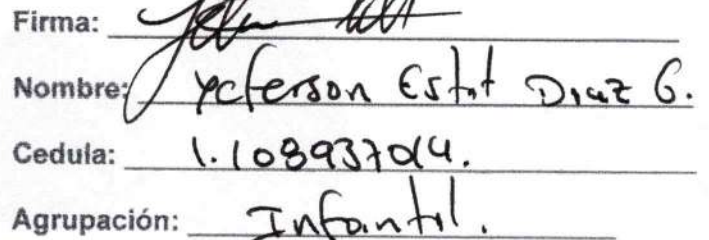 Firma:
Nombre: Yeferson Estit Diaz G.
Cedula: 1.108937014.
Agrupación: Infantil.